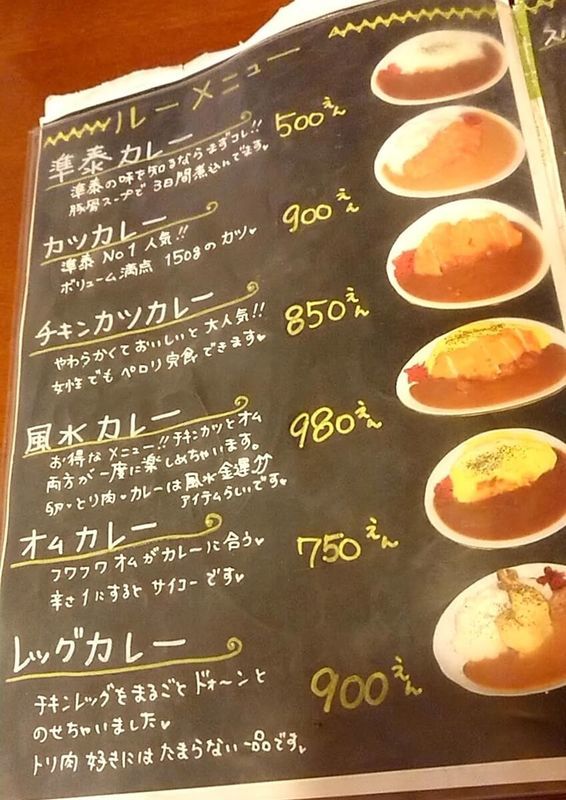 ルーメニュー
準泰カレー 500えん
準泰の味を知るならまずコレ!!
豚骨スープで3日間煮込んでます。
カツカレー 900えん
準泰No1人気!!
ボリューム満点 150gのカツ♥
チキンカツカレー 850えん
やわらかくておいしいと大人気!!
女性でもペロリ完食できます♥
風水カレー 980えん
お得なメニュー!!チキンカツとオム
両方が一度に楽しめちゃいます。
卵・とり肉・カレーは風水金運⤴
アイテムらしいです♥
オムカレー 750えん
フワフワオムがカレーに合う♥
辛さ1にするとサイコーです♥
レッグカレー 900えん
チキンレッグをまるごとドォ〜ンと
のせちゃいました♥
トリ肉好きにはたまらない一品です♥